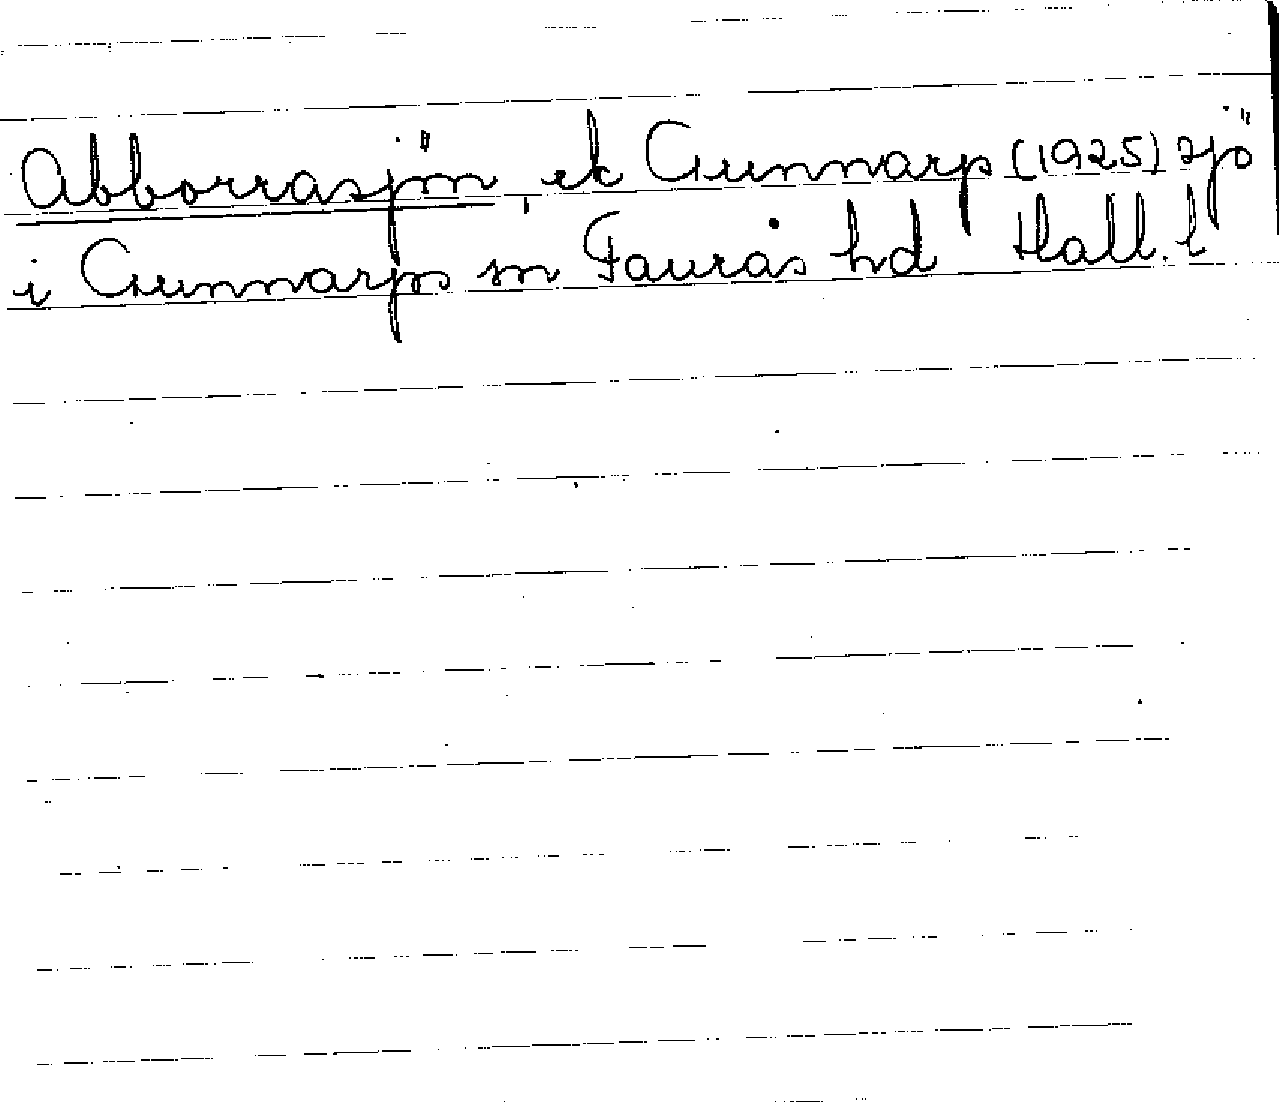 Abborrasjön, ek Gunnarp (1925) sjö
i Gunnarps sn Faurås hd Hall. l